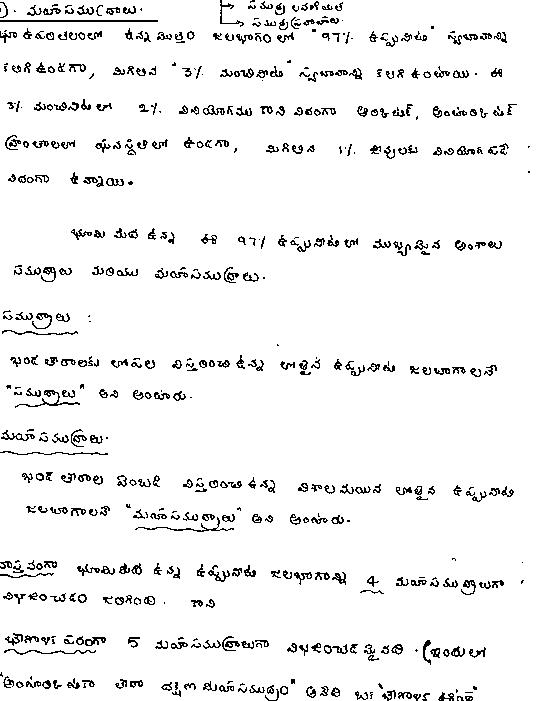 మహాసముద్రాలు. → సముద్ర లవణీయత
→ సముద్ర ప్రవాహాలు
భూ ఉపరితలంలో ఉన్న మొత్తం జలభాగం లో "97% ఉప్పునీటి" స్వభావాన్ని
కలిగి ఉండగా, మిగిలిన "3% మంచినీటి" స్వభావాన్ని కలిగి ఉంటాయి. ఈ
3% మంచినీటిలో 2% వినియోగము కాని విదంగా ఆర్కిటిక్, అంటార్కిటిక్
ప్రాంతాలలో ఘనస్థితిలో ఉండగా, మిగిలిన 1% జీవులకు వినియోగపడే
విదంగా ఉన్నాయి.
భూమి మీద ఉన్న ఈ 97% ఉప్పునీటిలో ముఖ్యమైన అంశాలు
సముద్రాలు మరియు మహాసముద్రాలు.
సముద్రాలు :
ఖండ తీరాలకు లోపల విస్తరించి ఉన్న లోతైన ఉప్పునీటి జలబాగాలనే
"సముద్రాలు" అని అంటారు.
మహాసముద్రాలు.
ఖండ తీరాల వెంబడి విస్తరించి ఉన్న విశాలమయిన లోతైన ఉప్పునీటి
జలబాగాలనే "మహాసముద్రాలు" అని అంటారు.
వాస్తవంగా భూమిమీద ఉన్న ఉప్పునీటి జలభాగాన్ని 4 మహాసముద్రాలుగా
విభజించడం జరిగింది. కాని
భౌగోళిక పరంగా 5 మహాసముద్రాలుగా విభజించడమైనది. (ఇందులో
"అంటార్కిటికా తీరా దక్షిణ మహాసముద్రం" అనేది ఒక "భౌగోళిక